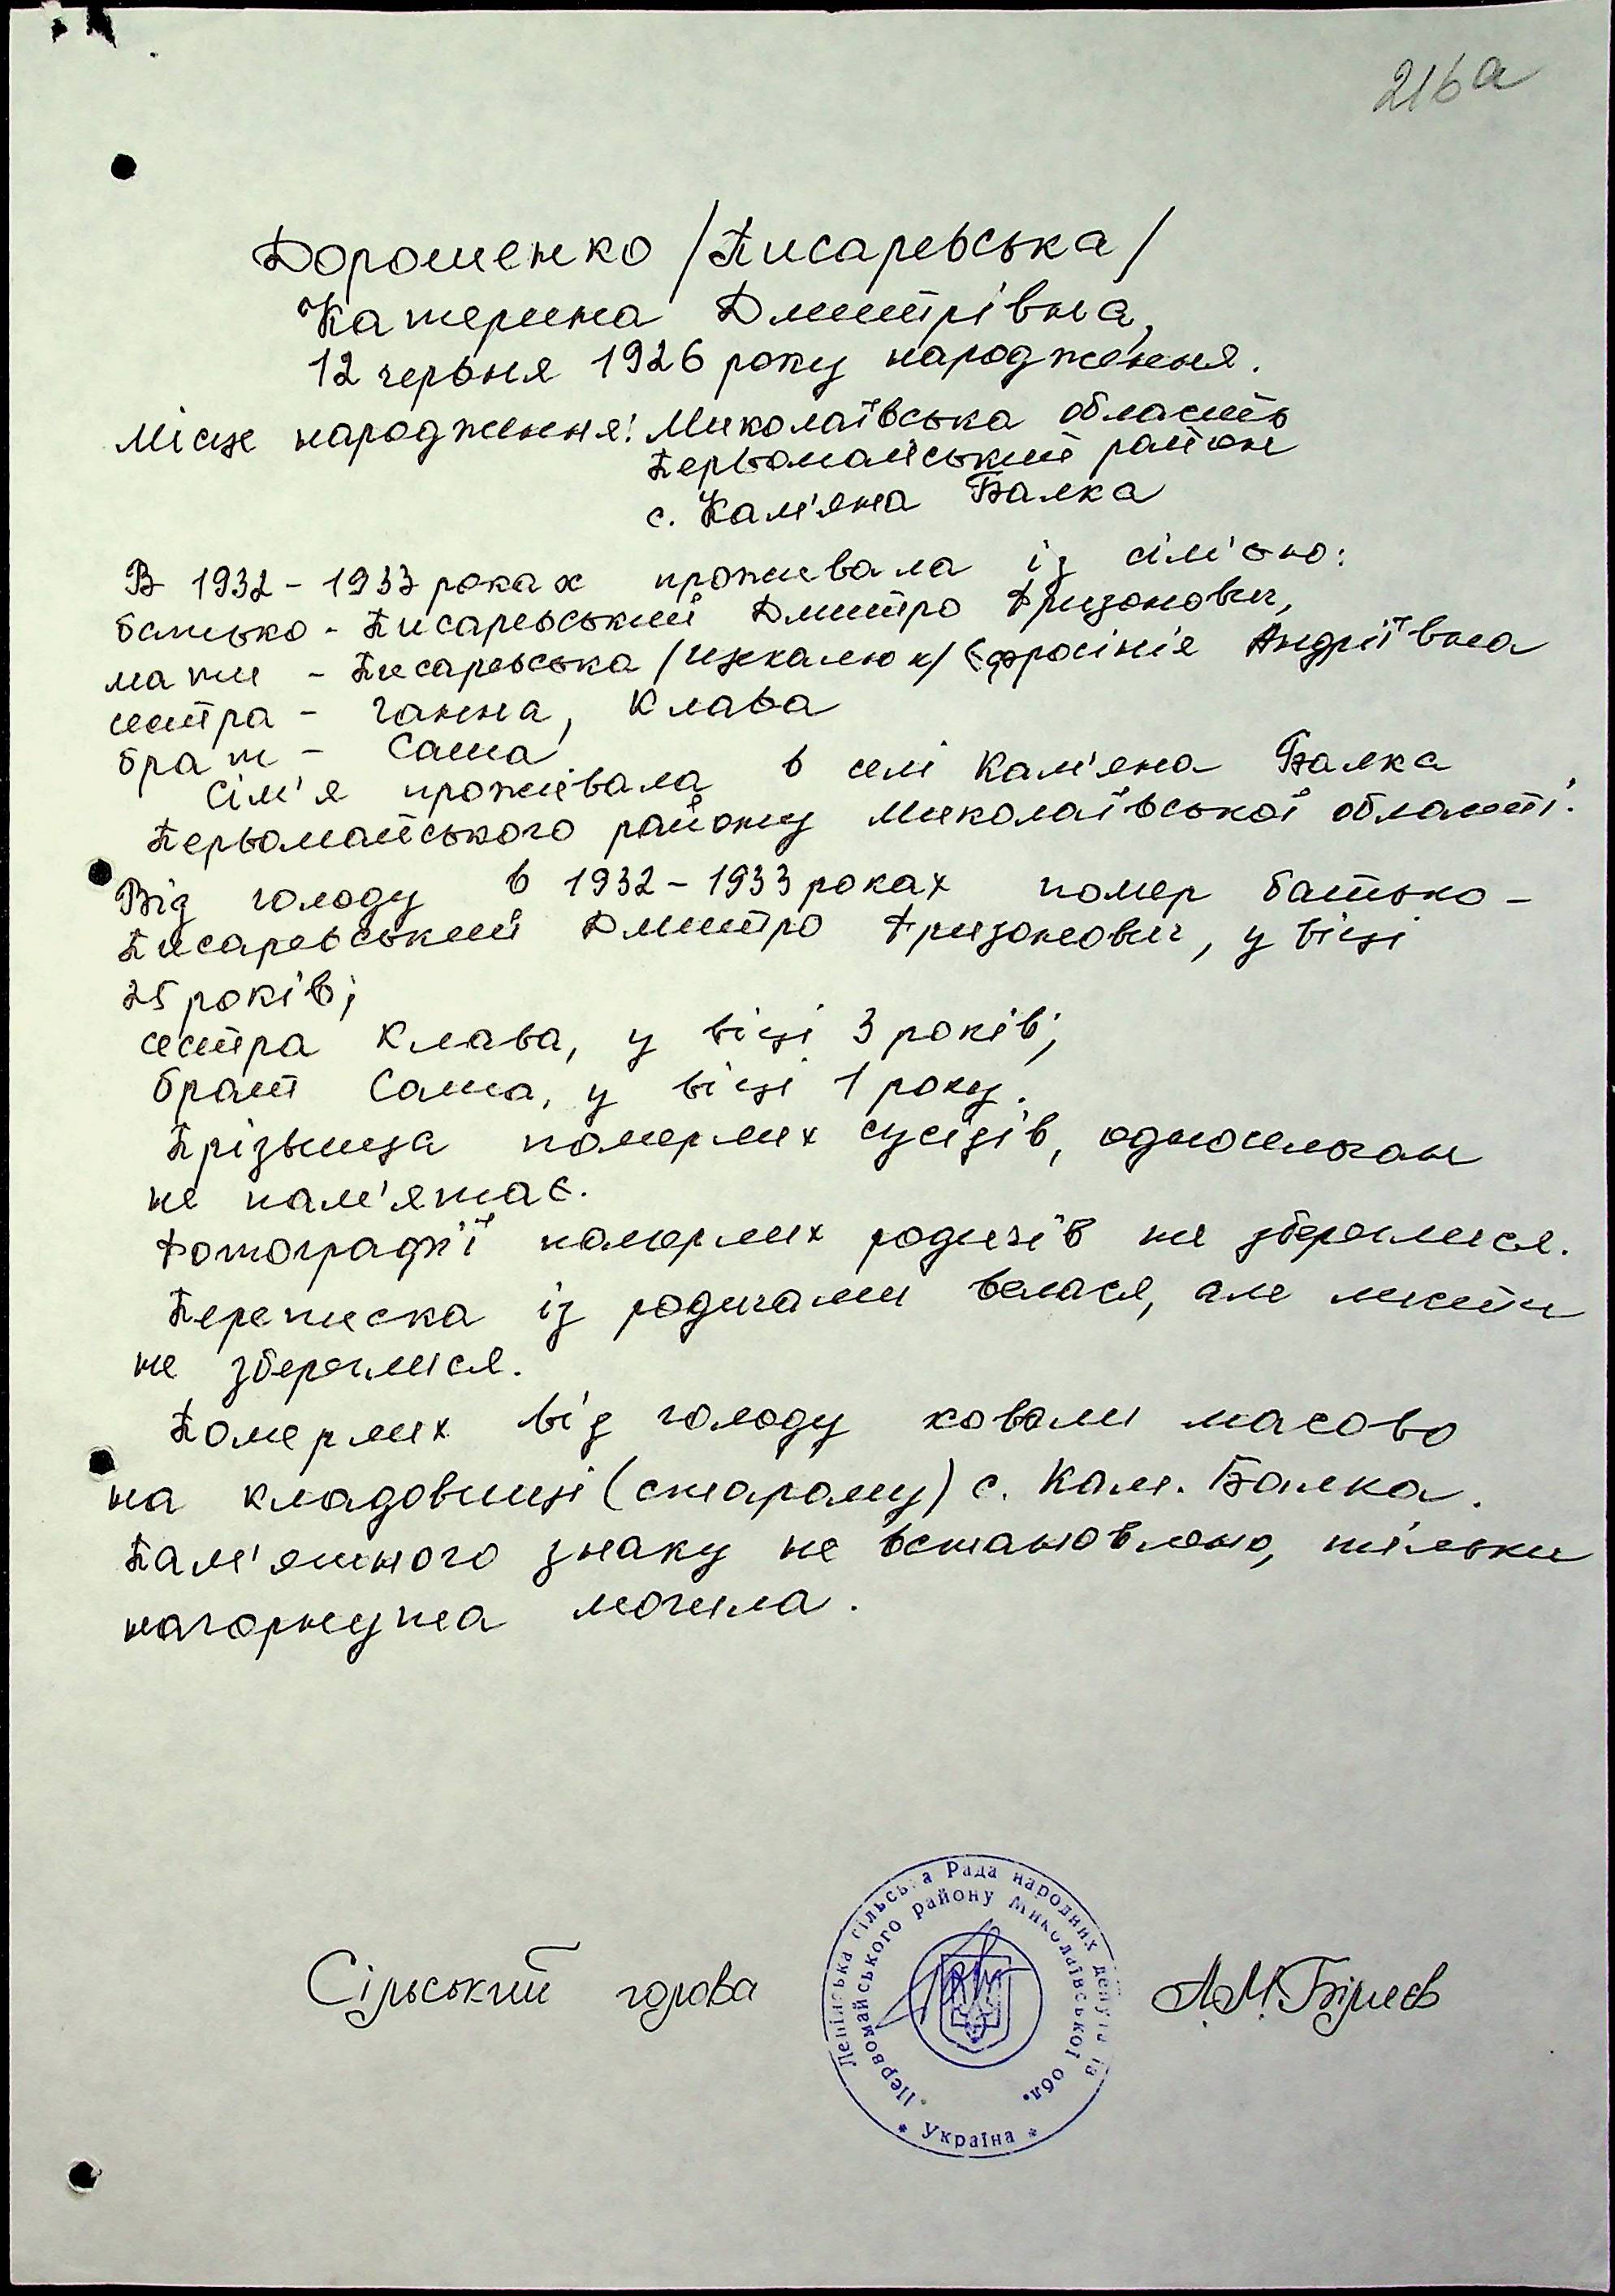 216а
Дорошенко /Писаревська/
Катерина Дмитрівна,
12 червня 1926 року народження.
Місце народження: Миколаївська область
Первомайський район
с. Кам'яна Балка
В 1932-1933 роках проживала із сім'єю:
батько - Писаревський Дмитро Фризонович,
мати - Писаревська /Цекалюк/ Єфросінія Андріївна
сестра - Ганна, Клава
брат - Саша
Сім'я проживала в селі Кам'яна Балка
Первомайського району Миколаївської області.
Від голоду в 1932-1933 роках помер батько -
Писаревський Дмитро Фризонович, у віці
25 років;
сестра Клава, у віці 3 років;
брат Саша, у віці 1 року.
Прізвища померлих сусідів, односельчан
не пам'ятає.
Фотографії померлих родичів не збереглися.
Переписка із родичами велася, але листи
не збереглися.
Померлих від голоду ховали масово
на кладовищі (старому) с. Кам. Балка.
Пам'ятного знаку не встановлено, тільки
нагорнута могила.
Сільський голова А.М. Біляєв
Ленінська сільська Рада народних депутатів
Первомайського району Миколаївської обл.
* Україна *